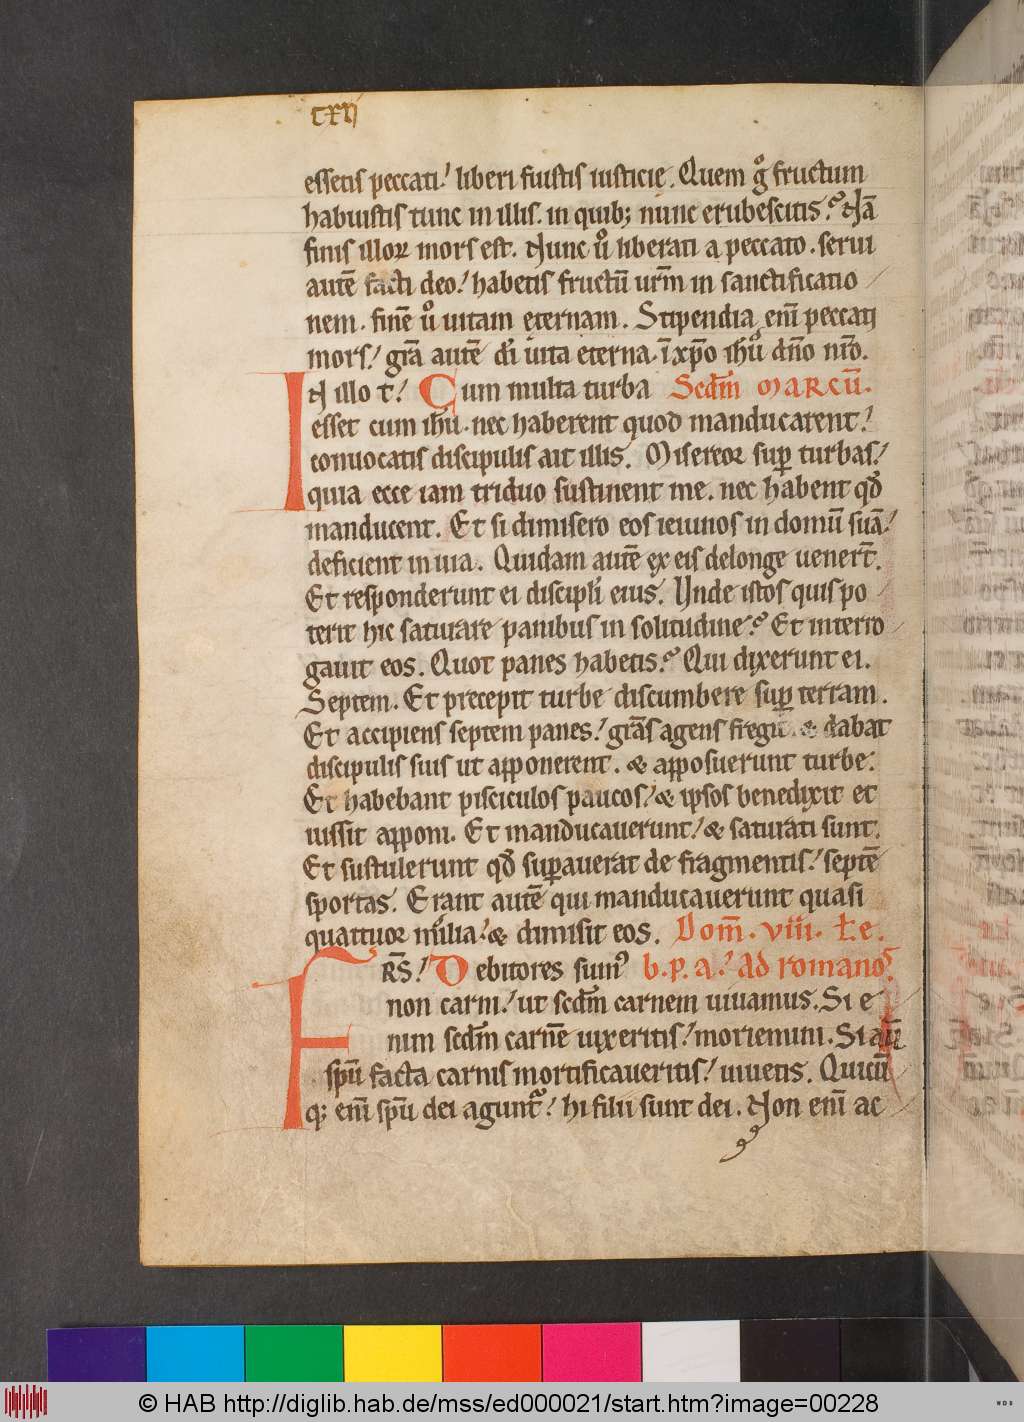 cxii
essetis peccati! liberi fuistis iusticie. Quem gͦ fructum
habuistis tunc in illis. in quib; nunc erubescitis? Nā
finis illoꝝ mors est. Nunc uͦ liberati a peccato. serui
autē facti deo! habetis fructū urm̄ in sanctificatio
nem. finē uͦ uitam eternam. Stipendia eni᷈ peccati
mors! gr̄a autē di᷈ uita eterna. ī xp̄o ih̄u dn̄o nr̄o.
IN illo t̄! Cum multa turba Scdm̄ MARCū.
esset cum ih̄u. nec haberent quod manducarent!
conuocatis discipulis ait illis. Misereor suꝑ turbas!
quia ecce iam triduo sustinent me. nec habent qd̄
manducent. Et si dimisero eos ieiunos in domū suā!
deficient in uia. Quidam autē ex eis delonge uener̄t.
Et responderunt ei discipli᷈ eius. Unde istos quis po
terit hic saturare panibus in solitudine? Et interro
gauit eos. Quot panes habetis? Qui dixerunt ei.
Septem. Et precepit turbe discumbere suꝑ terram.
Et accipiens septem panes! gr̄as agens fregit. & dabat
discipulis suis ut apponerent. & apposuerunt turbe.
Et habebant pisciculos paucos! & ipsos benedixit et
iussit apponi. Et manducauerunt! & saturati sunt.
Et sustulerunt qd̄ suꝑauerat de fragmentis! septē
sportas. Erant autē qui manducauerunt quasi
quattuor milia! & dimisit eos. Dom̄. viii. Le.
FRS̄! Debitores sum᷒ b. p. a.! Ad romanos
non carni! ut scdm̄ carnem uiuamus. Si e
nim scdm̄ carnē uixeritis! moriemini. Si aū
sp̄u facta carnis mortificaueritis! uiuetis. Quicū
q; eni᷈ sp̄u dei agunt᷑! hi filii sunt dei. Non eni᷈ ac
© HAB http://diglib.hab.de/mss/ed000021/start.htm?image=00228